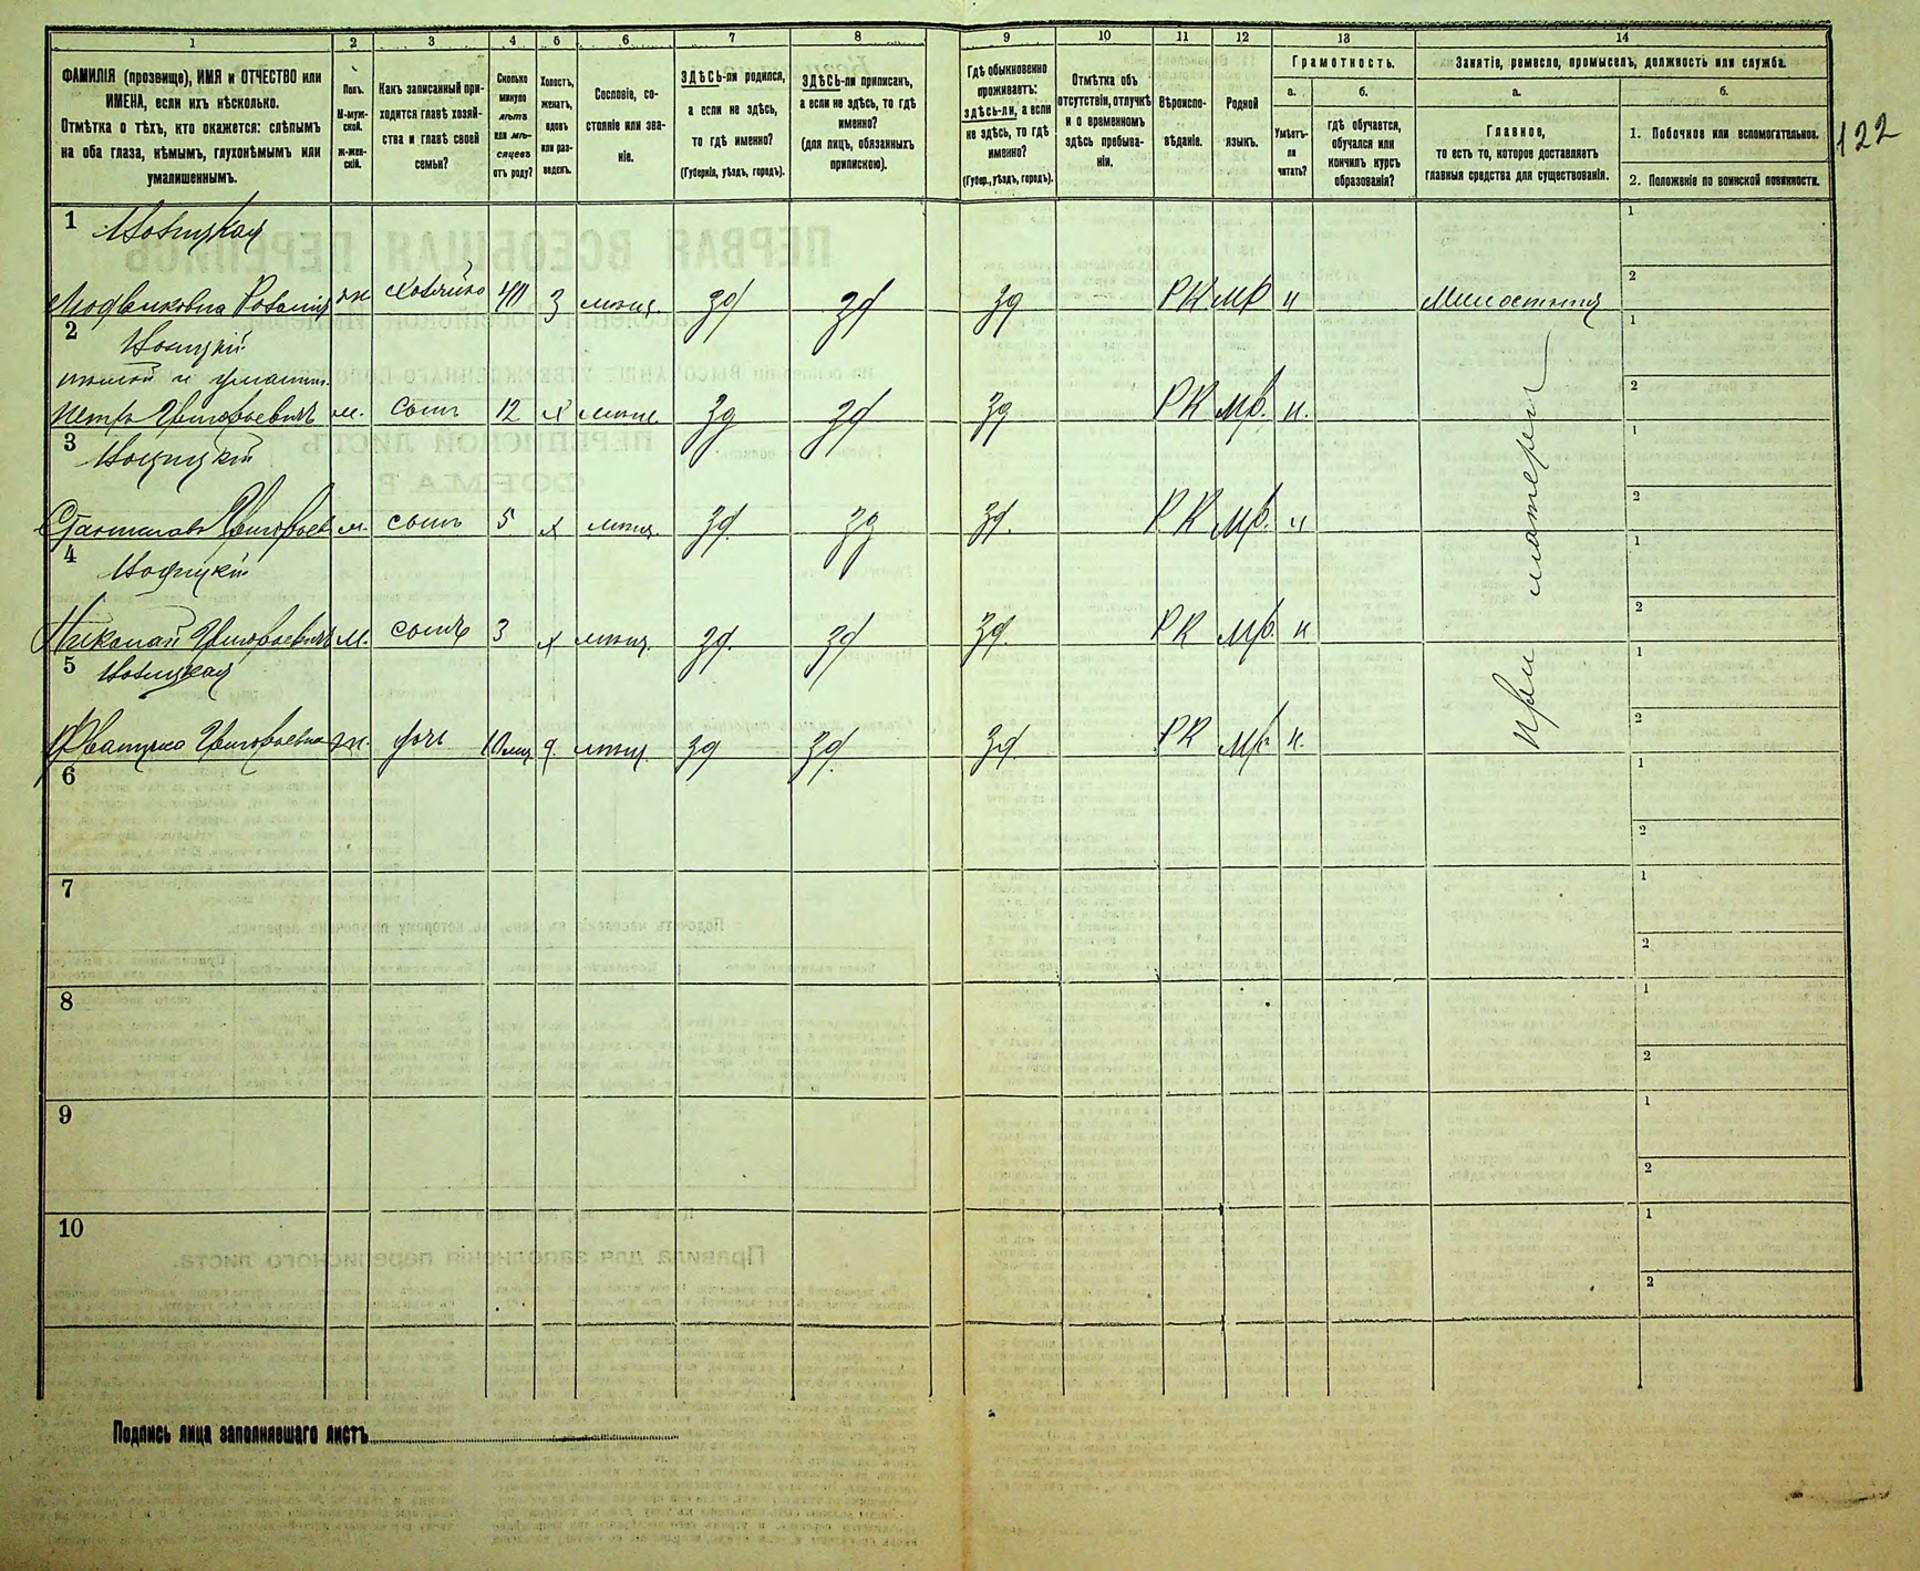 1 2 3 4 5 6 7 8 9 10 11 12 13 14
ФАМИЛІЯ (прозвище), ИМЯ и ОТЧЕСТВО или
ИМЕНА, если ихъ нѣсколько.
Отмѣтка о тѣхъ, кто окажется: слѣпымъ
на оба глаза, нѣмымъ, глухонѣмымъ или
умалишеннымъ.
Полъ.
М-муж-
ской.
Ж-жен-
скій.
Какъ записанный при-
ходится главѣ хозяй-
ства и главѣ своей
семьи?
Сколько
минуло
лѣтъ
или мѣ-
сяцевъ
отъ роду?
Холостъ,
женатъ,
вдовъ
или раз-
веденъ.
Сословіе, со-
стояніе или зва-
ніе.
ЗДѢСЬ-ли родился,
а если не здѣсь,
то гдѣ именно?
(Губернія, уѣздъ, городъ).
ЗДѢСЬ-ли приписанъ,
а если не здѣсь, то гдѣ
именно?
(для лицъ, обязанныхъ
припискою).
Гдѣ обыкновенно
проживаетъ:
здѣсь-ли, а если
не здѣсь, то гдѣ
именно?
(Губер., уѣздъ, городъ).
Отмѣтка объ
отсутствіи, отлучкѣ
и о временномъ
здѣсь пребыва-
ніи.
Вѣроиспо-
вѣданіе.
Родной
языкъ.
Грамотность.
а. б.
Умѣетъ-
ли
читать?
гдѣ обучается,
обучался или
кончилъ курсъ
образованія?
Занятіе, ремесло, промыселъ, должность или служба.
а. б.
Главное,
то есть то, которое доставляетъ
главныя средства для существованія.
1. Побочное или вспомогательное.
2. Положеніе по воинской повинности.
122
1 Новицкая
ж хозяйка 40 мѣщ. зд зд зд РК н Милостыня
2 Новицкій
нѣмой и
Петръ Григорьевичъ м. сынъ 12 х мѣщ. зд зд зд РК н.
3 Новицкій
Станиславъ м. сынъ 5 х мѣщ. зд зд зд. РК н
4 Новицкій
Николай Григорьевичъ м. сынъ 3 х мѣщ. зд. зд зд. РК н
5 Новицкая
Григорьевна ж. дочь 10 мѣс д мѣщ. зд зд. зд. РК н.
При матери
6
7
8
9
10
1
2
1
2
1
2
1
2
1
2
1
2
1
2
1
2
1
2
1
2
Подпись лица заполнявшаго листъ